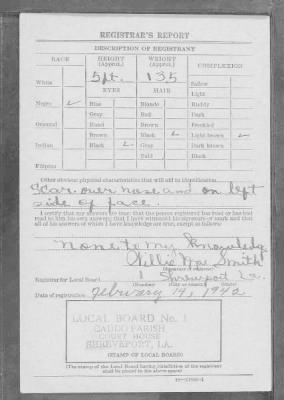 REGISTRAR'S REPORT
DESCRIPTION OF REGISTRANT
RACE HEIGHT (Approx.) WEIGHT (Approx.) COMPLEXION
5 ft. 135
White Sallow
EYES HAIR Light
Negro ✓ Blue Blonde Ruddy
Gray Red Dark
Oriental Hazel Brown Freckled
Brown Black ✓ Light brown ✓
Indian Black ✓ Gray Dark brown
Bald Black
Filipino
Other obvious physical characteristics that will aid in identification
Scar over nose and on left
side of face.
I certify that my answers are true; that the person registered has read or has had
read to him his own answers; that I have witnessed his signature or mark and that
all of his answers of which I have knowledge are true, except as follows:
None to my knowledge
Smith
(Signature of registrar)
Registrar for Local Board 1 Shreveport La.
(Number)
Date of registration February 14, 1942
LOCAL BOARD No. 1
CADDO PARISH
COURT HOUSE
SHREVEPORT, LA.
(STAMP OF LOCAL BOARD)
(The stamp of the Local Board having jurisdiction of the registrant
shall be placed in the above space)